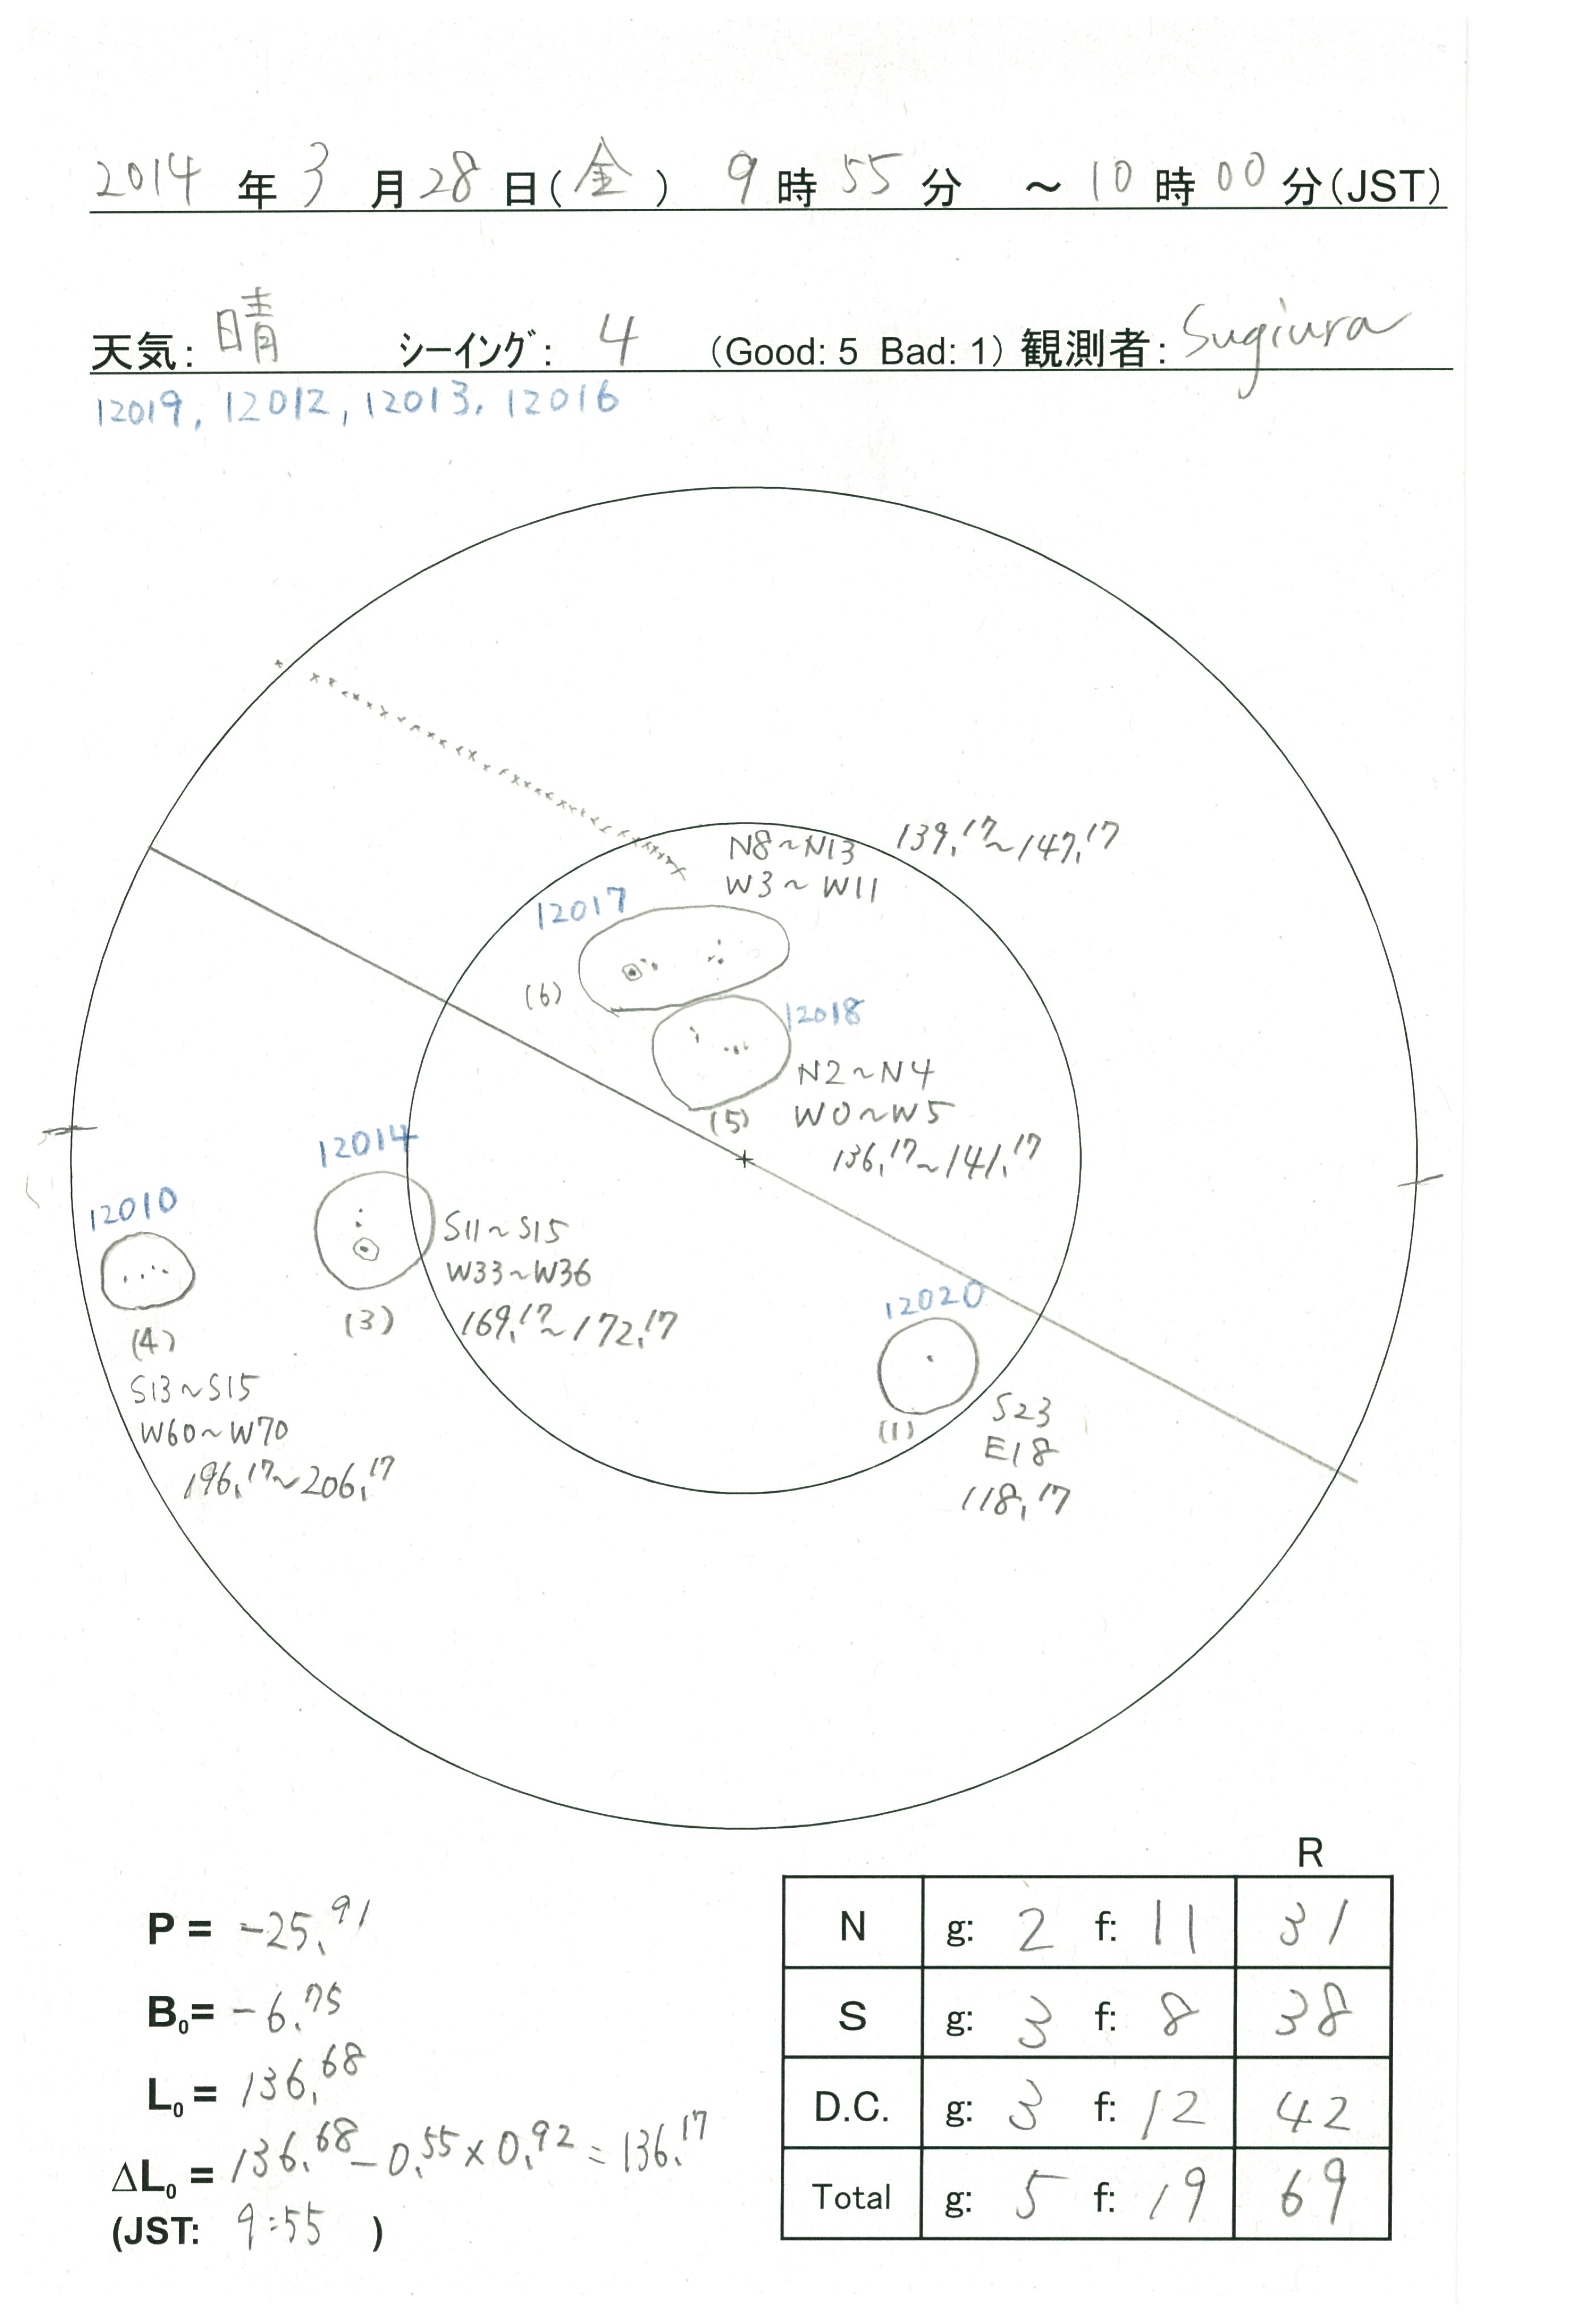 2014 年 3 月 28 日(金) 9 時 55 分 ～ 10 時 00 分(JST)
天気: 晴 シーイング: 4 (Good: 5 Bad: 1) 観測者: Sugiura
12019, 12012, 12013, 12016
N8～N13 139.17～147.17
W3～W11
12017
(6)
12018
N2～N4
W0～W5
(5)
136.17～141.17
12014
12010
S11～S15
W33～W36
(3)
169.17～172.17
12020
(4)
S13～S15
W60～W70
196.17～206.17
(1)
S23
E18
118.17
R
P = -25.91
N g: 2 f: 11 31
B0= -6.75
S g: 3 f: 8 38
L0 = 136.68
D.C. g: 3 f: 12 42
ΔL0 = 136.68 - 0.55 × 0.92 = 136.17
Total g: 5 f: 19 69
(JST: 9:55 )